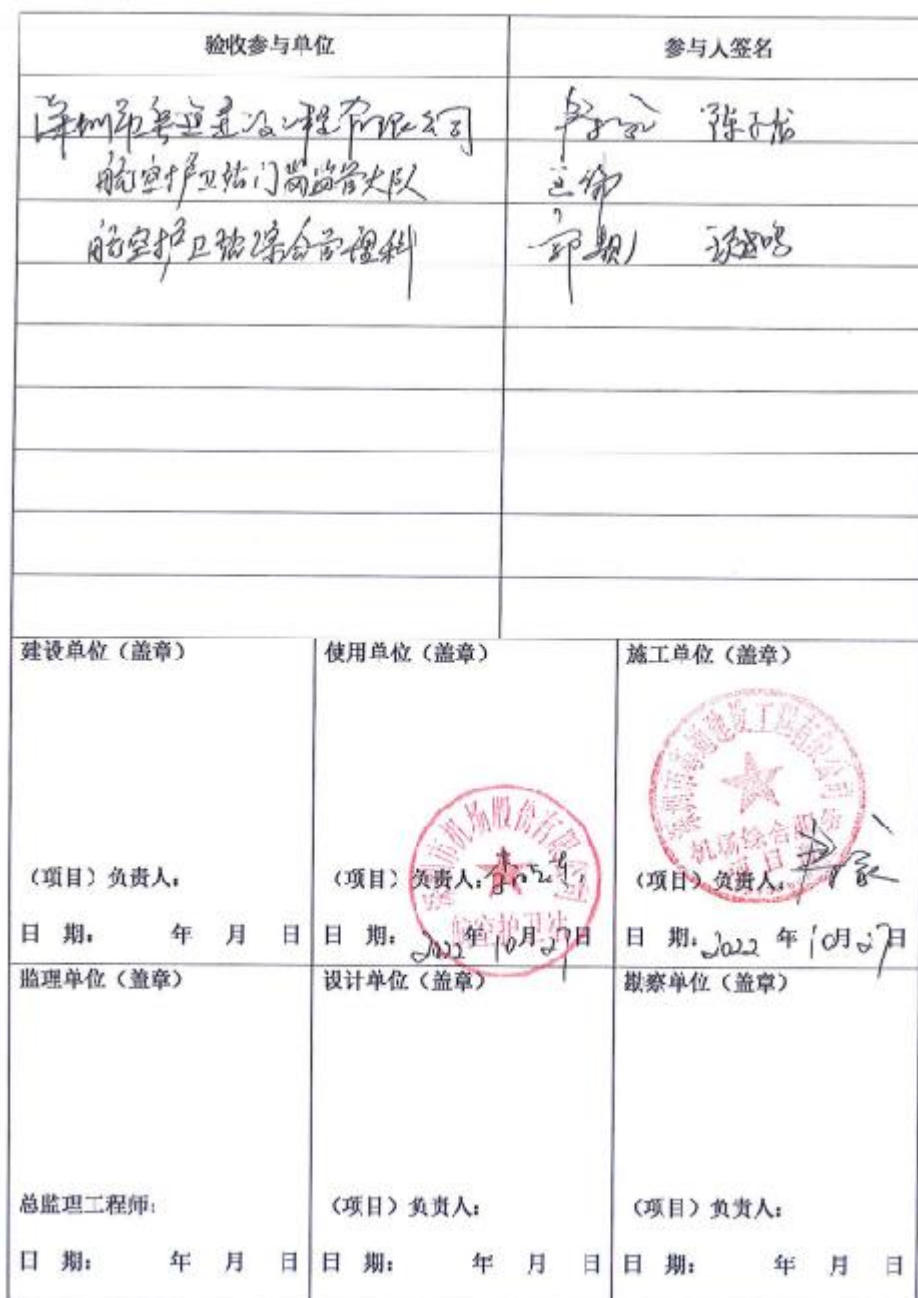 验收参与单位 参与人签名
深圳市粤通建设工程有限公司 陈子龙
航空护卫站门岗监管大队
航空护卫站综合管理科
建设单位（盖章） 使用单位（盖章） 施工单位（盖章）
深圳市机场股份有限公司
航空护卫站
深圳市粤通建设工程有限公司
机场综合服务
项目部
（项目）负责人： （项目）负责人： （项目）负责人：
日 期： 年 月 日 日 期：2022 年 10 月 27 日 日 期：2022 年 10 月 27 日
监理单位（盖章） 设计单位（盖章） 勘察单位（盖章）
总监理工程师： （项目）负责人： （项目）负责人：
日 期： 年 月 日 日 期： 年 月 日 日 期： 年 月 日